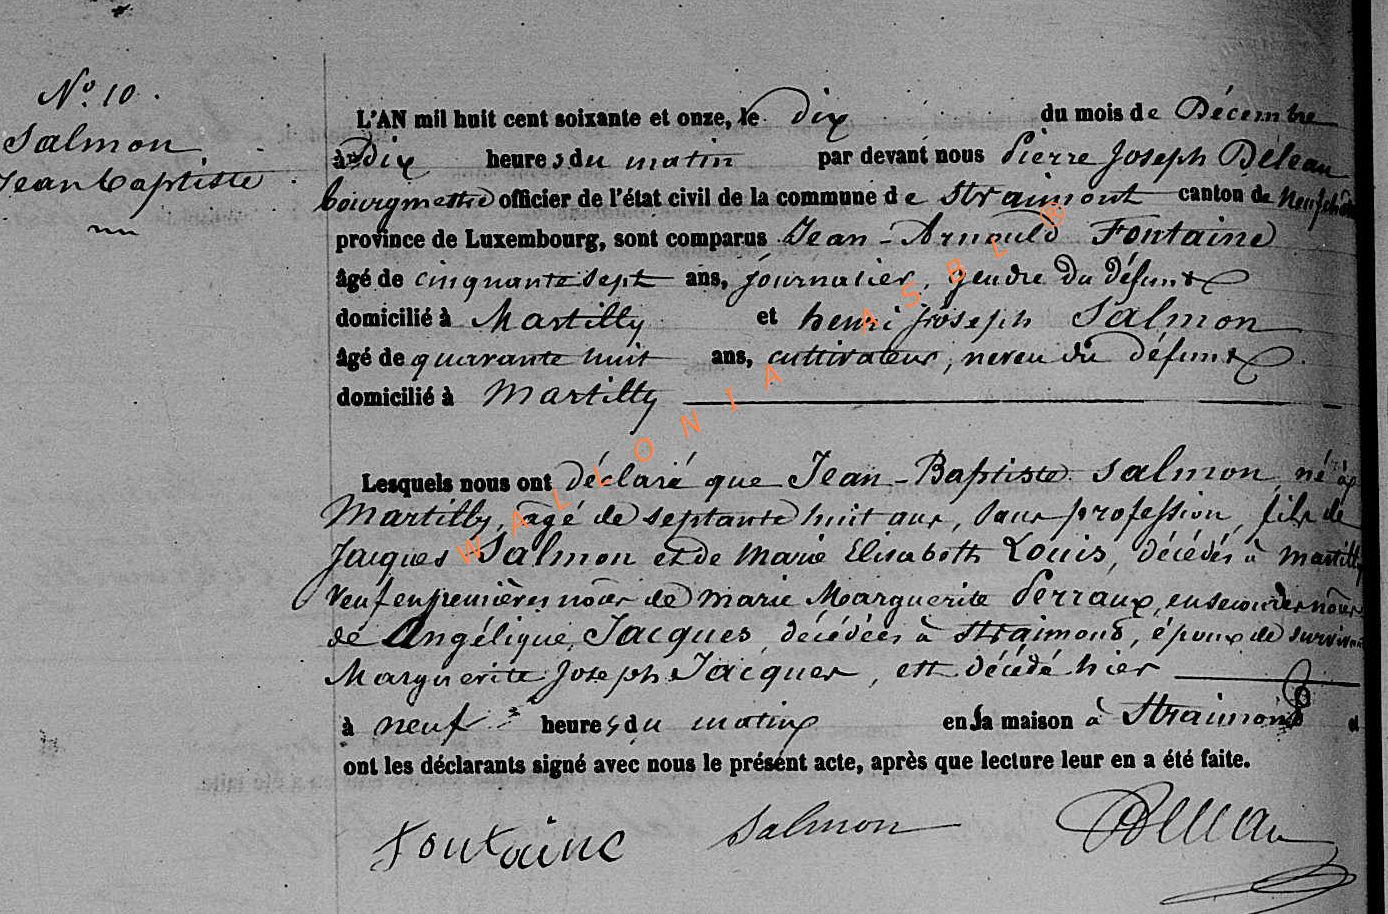 N.º 10.
Salmon
Jean Baptiste
L'AN mil huit cent soixante et onze, le dix du mois de Décembre
à dix heures du matin par devant nous Pierre Joseph Déleau
bourgmestre officier de l'état civil de la commune de Straimont canton de Neufchâ
province de Luxembourg, sont comparus Jean-Arnould Fontaine
âgé de cinquante sept ans, journalier, gendre du défunt
domicilié à Martilly et henri joseph Salmon
âgé de quarante huit ans, cultivateur, neveu du défunt
domicilié à Martilly
Lesquels nous ont déclaré que Jean-Baptiste Salmon, né à
Martilly, agé de septante huit ans, sans profession, fils de
Jacques Salmon et de Marie Elisabeth Louis, décédés à Martilly
veuf en premières nôces de Marie Marguerite Perraux, en secondes nôces
de Angélique Jacques, décédées à Straimont, époux de survivant
Marguerite Joseph Jacques, est décédé hier
à neuf heures du matin en sa maison à Straimont et
ont les déclarants signé avec nous le présent acte, après que lecture leur en a été faite.
Fontaine Salmon Déleau
WALLONIA ASBL ®